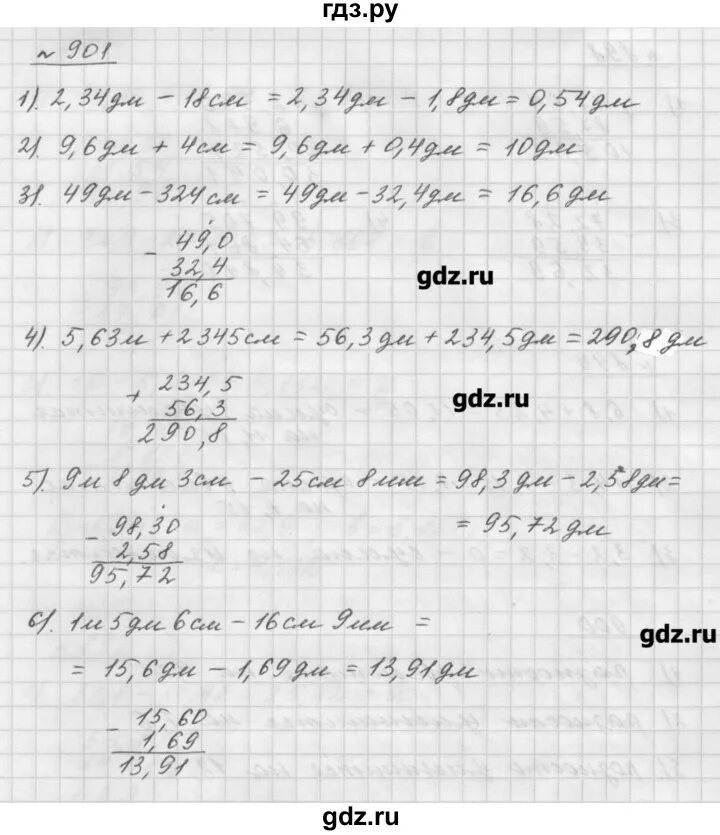 гдз.ру
№ 901
1). 2,34дм – 18см = 2,34дм – 1,8дм = 0,54дм
2). 9,6дм + 4см = 9,6дм + 0,4дм = 10дм
3). 49дм – 324см = 49дм – 32,4дм = 16,6дм
– 49,0
32,4
16,6
gdz.ru
4). 5,63м + 2345см = 56,3дм + 234,5дм = 290,8дм
+ 234,5
56,3
290,8
gdz.ru
5). 9м 8дм 3см – 25см 8мм = 98,3дм – 2,58дм =
= 95,72дм
– 98,30
2,58
95,72
6). 1м 5дм 6см – 16см 9мм =
gdz.ru
= 15,6дм – 1,69дм = 13,91дм
– 15,60
1,69
13,91
gdz.ru